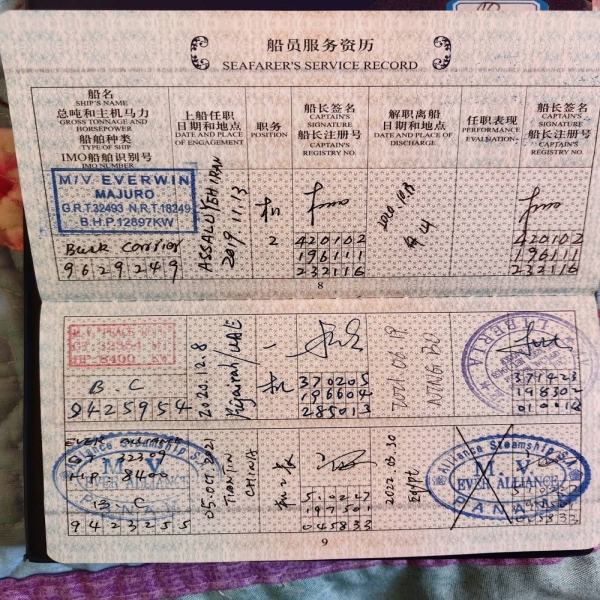 船员服务资历
SEAFARER'S SERVICE RECORD
船名
SHIP'S NAME
总吨和主机马力
GROSS TONNAGE AND
HORSEPOWER
船舶种类
TYPE OF SHIP
IMO船舶识别号
IMO NUMBER
上船任职
日期和地点
DATE AND PLACE
OF ENGAGEMENT
职务
POSITION
船长签名
CAPTAIN'S
SIGNATURE
船长注册号
CAPTAIN'S
REGISTRY NO.
解职离船
日期和地点
DATE AND PLACE OF
DISCHARGE
任职表现
PERFORMANCE
EVALUATION
船长签名
CAPTAIN'S
SIGNATURE
船长注册号
CAPTAIN'S
REGISTRY NO.
M/V EVERWIN
MAJURO
G.R.T.32493 N.R.T.18249
B.H.P.12897KW
Bulk carrier
9629249
ASSALUYEH IRAN
2019.11.13
2
420102
196111
232116
2020.10.8
420102
196111
232116
8
B.C
9425954
2020.12.8
Fujairah/UAE
一
370205
196604
285013
NING BO
LIBERIA
371423
198302
Alliance Steamship S.A.
M V
EVER ALLIANCE
PANAMA
32309
HP 8400
9423255
05.OCT.2021
TIANJIN
CHINA
197501
045833
2022.03.30
Egypt
Alliance Steamship S.A.
M V
EVER ALLIANCE
PANAMA
9